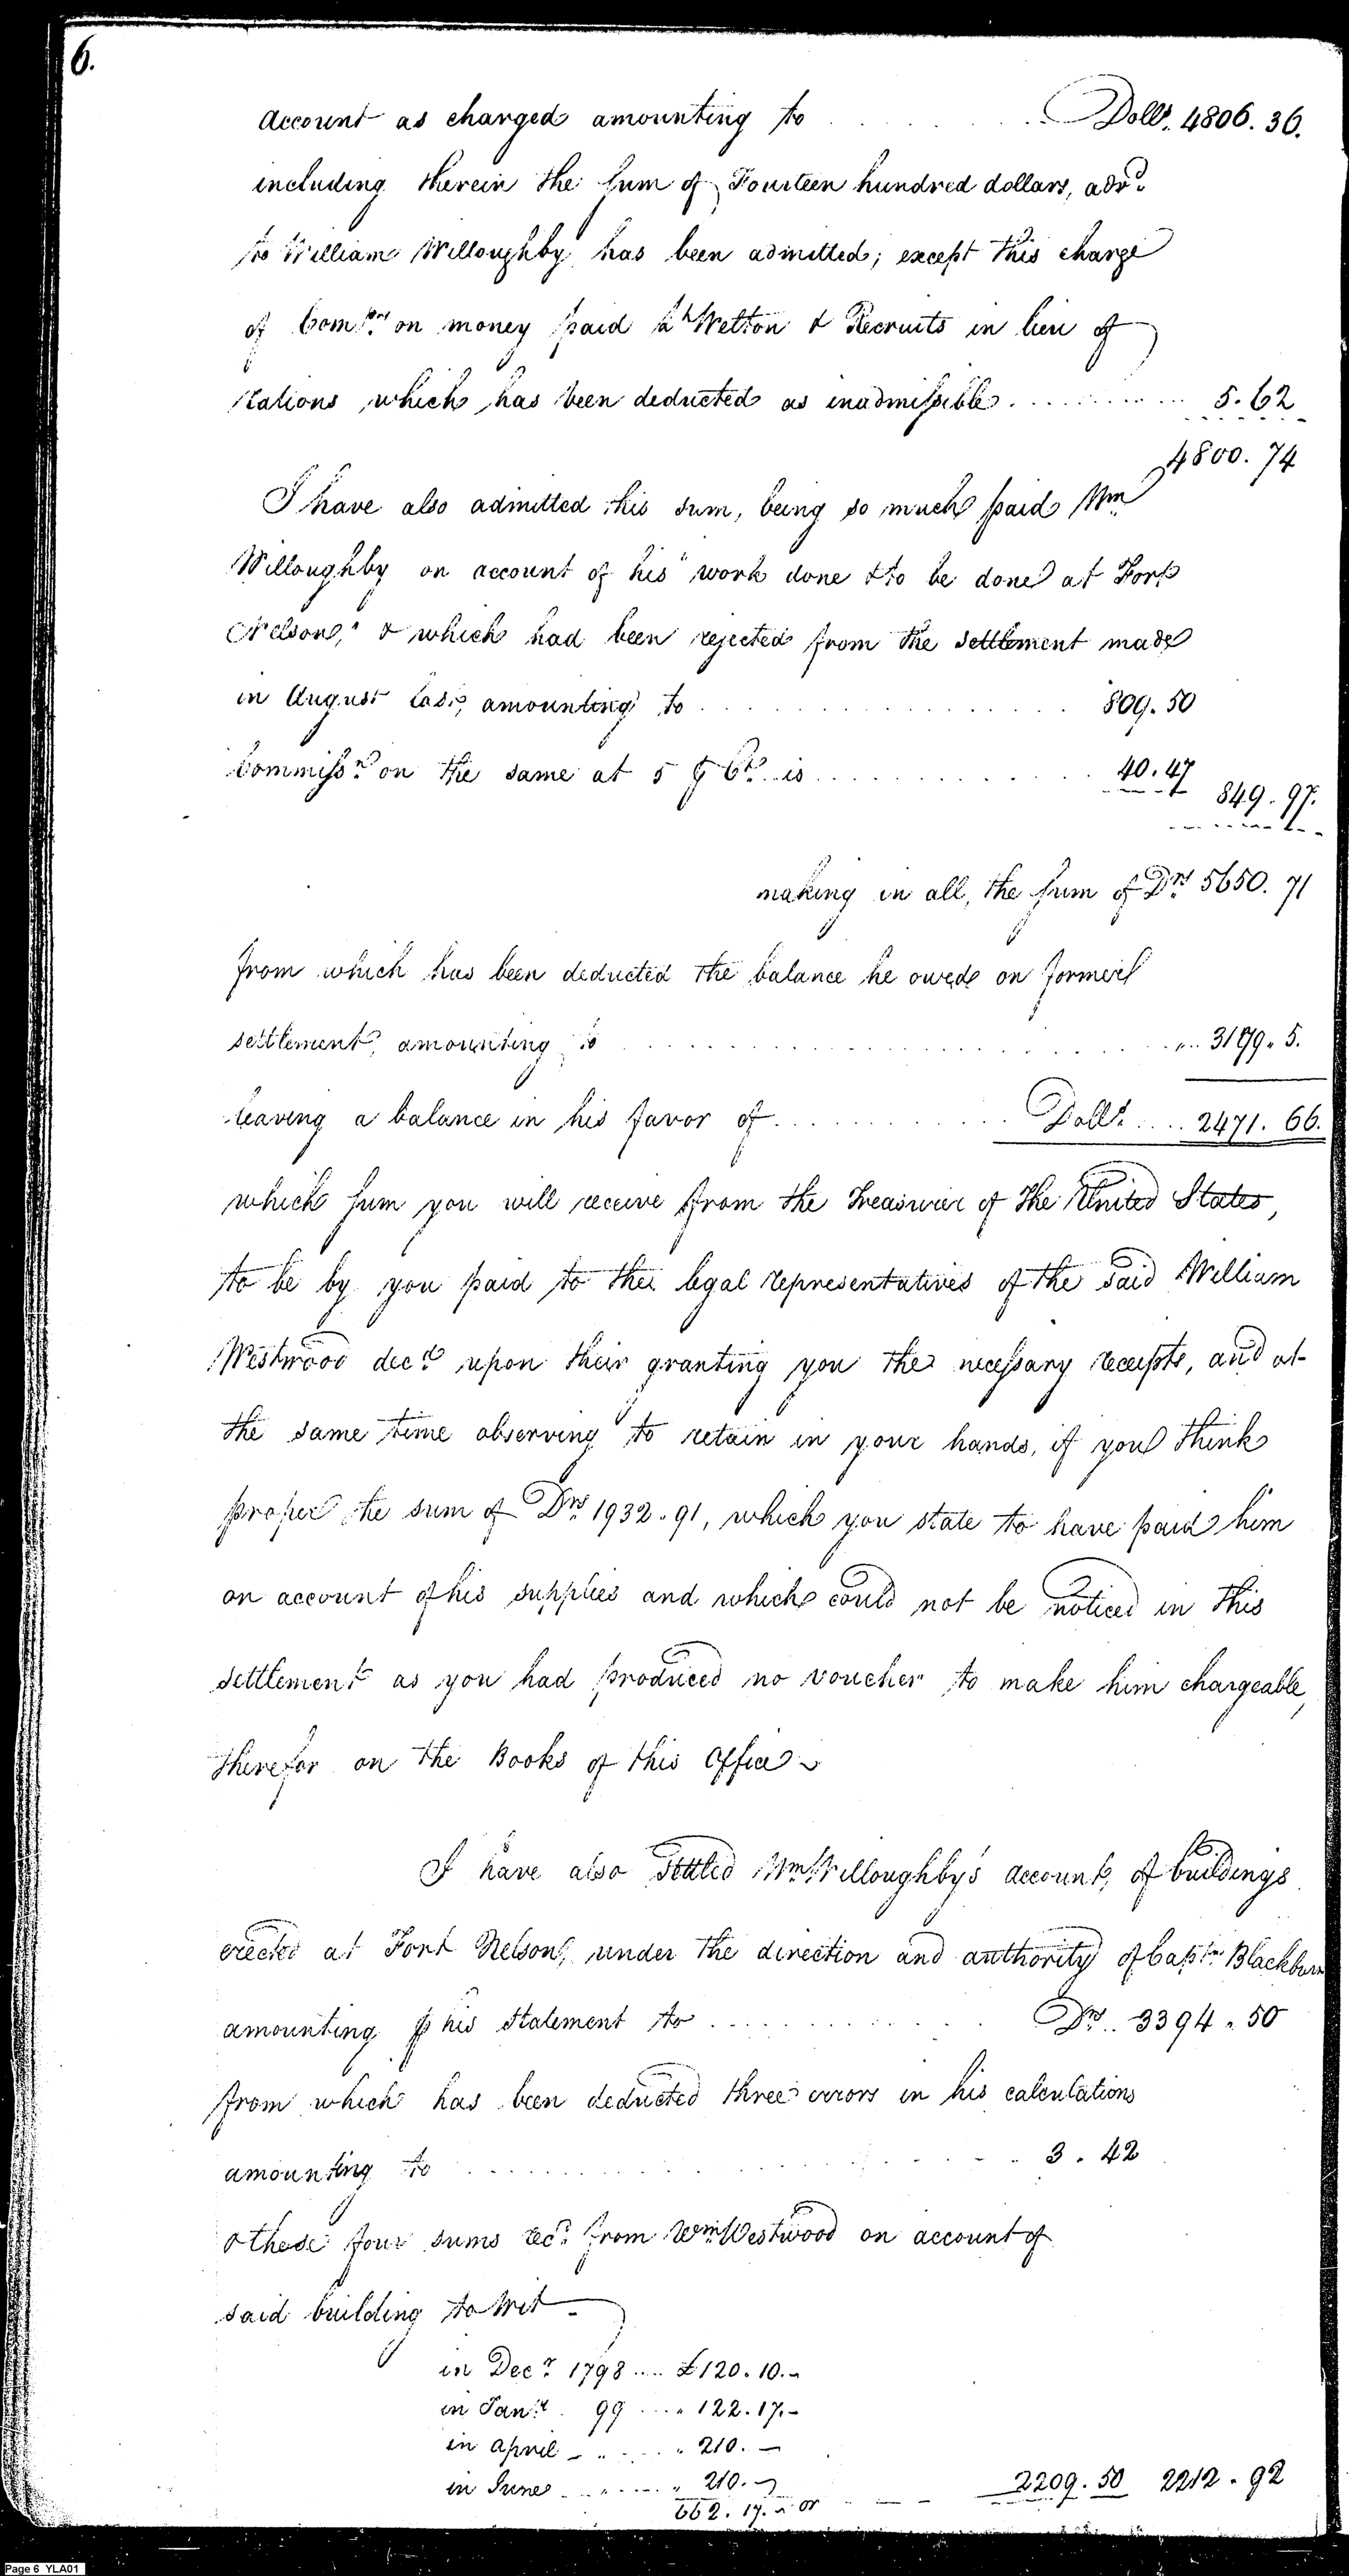 6.
account as charged amounting to . . . . . . . . Dolls. 4806. 36.
including therein the sum of Fourteen hundred dollars, advd.
to William Willoughby has been admitted; except this charge
of Comssn. on money paid Lt Welton & Recruits in lieu of
Rations, which has been deducted as inadmissible . . . . . . . . . . 5. 62
4800. 74
I have also admitted this sum, being so much paid Wm
Willoughby on account of his "work done & to be done at Fort
Nelson," & which had been rejected from the settlement made
in August last, amounting to . . . . . . . . . . . . . . . . 809. 50
Commissn. on the same at 5 ⅌ Ct. is . . . . . . . . . . . 40. 47
849. 97.
making in all, the sum of Drs. 5650. 71
from which has been deducted the balance he owed on former
settlement, amounting to . . . . . . . . . . . . . . . . . . . . . . 3179. 5.
leaving a balance in his favor of . . . . . . . . . . . . Dolls. .... 2471. 66.
which sum you will receive from the Treasurer of the United States,
to be by you paid to the legal representatives of the said William
Westwood decd. upon their granting you the necessary receipts, and at
the same time observing to retain in your hands, if you think
proper the sum of Drs. 1932. 91, which you state to have paid him
on account of his supplies and which could not be noticed in this
settlement as you had produced no voucher to make him chargeable,
therefor on the Books of this Office
I have also settled Wm Willoughby's account, of buildings
erected at Fort Nelson, under the direction and authority of Captn. Blackburn
amounting ⅌ his statement to . . . . . . . . . . . . Drs. .. 3394. 50
from which has been deducted three errors in his calculations
amounting to . . . . . . . . . . . . . . . . . . . . . . . 3. 42
& these four sums recd. from Wm Westwood on account of
said building to wit
in Decr. 1798 .... £120. 10. -
in Jany. 99 .... " 122. 17. -
in April - " . . . . " 210. -
in June . . " . . . . " 210. -
662. 17. " or - - - 2209. 50 2212. 92
Page 6 YLA01